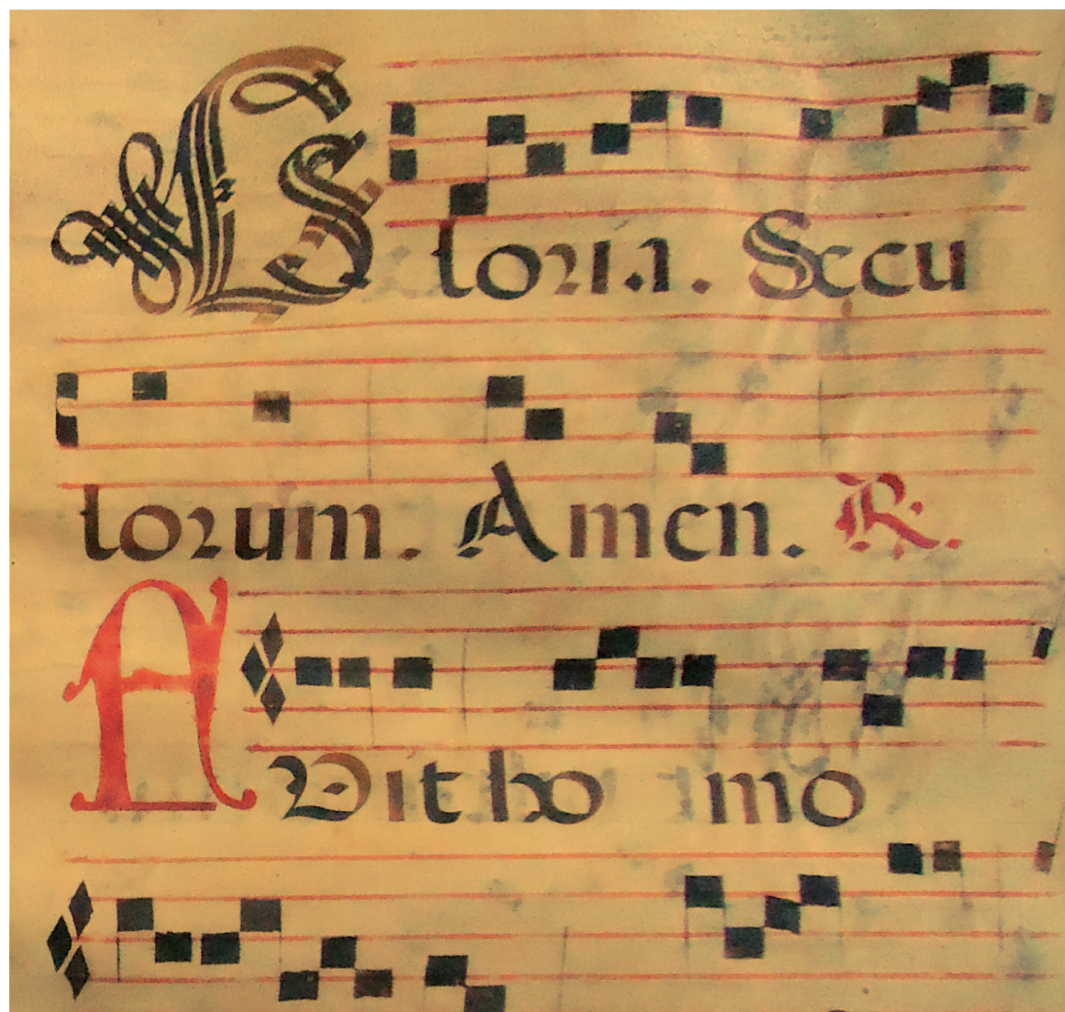 Gloria. Secu
lorum. Amen. R.
ADit ho mo